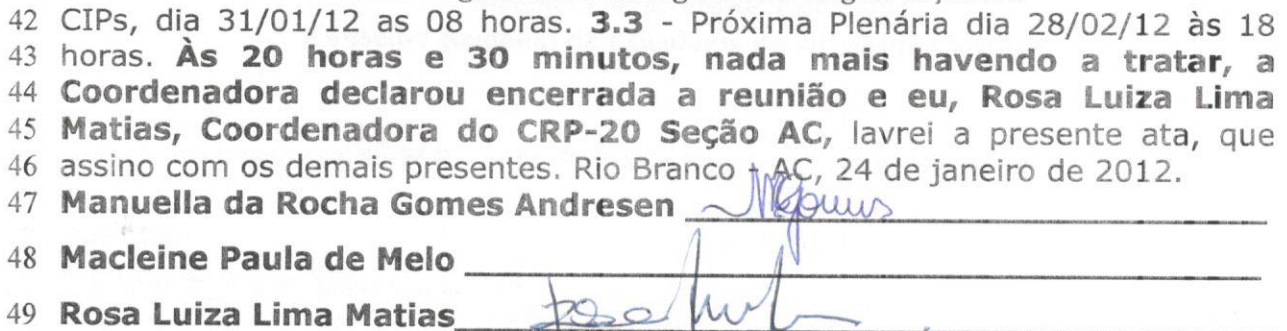 42 CIPs, dia 31/01/12 as 08 horas. 3.3 - Próxima Plenária dia 28/02/12 às 18
43 horas. Às 20 horas e 30 minutos, nada mais havendo a tratar, a
44 Coordenadora declarou encerrada a reunião e eu, Rosa Luiza Lima
45 Matias, Coordenadora do CRP-20 Seção AC, lavrei a presente ata, que
46 assino com os demais presentes. Rio Branco - AC, 24 de janeiro de 2012.
47 Manuella da Rocha Gomes Andresen
48 Macleine Paula de Melo
49 Rosa Luiza Lima Matias